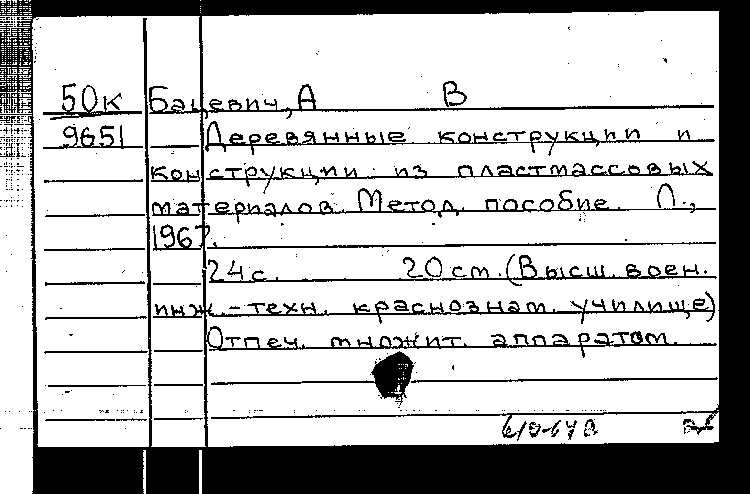 50к Бацевич, А В
9651 Деревянные конструкции и
конструкции из пластмассовых
материалов. Метод. пособие. Л.,
1967.
24с. 20 cm. (Высш. воен.
инж.-техн. краснознам. училище)
Отпеч. множит. аппаратом.